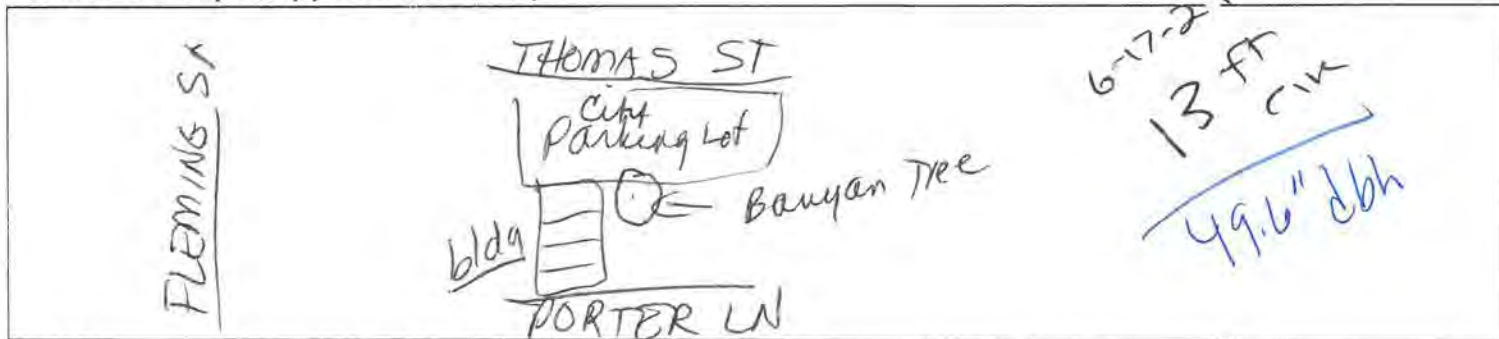 FLEMING St
THOMAS ST
City
Parking Lot
Banyan Tree
bldg
PORTER LN
13 ft
cir
49.6" dbh